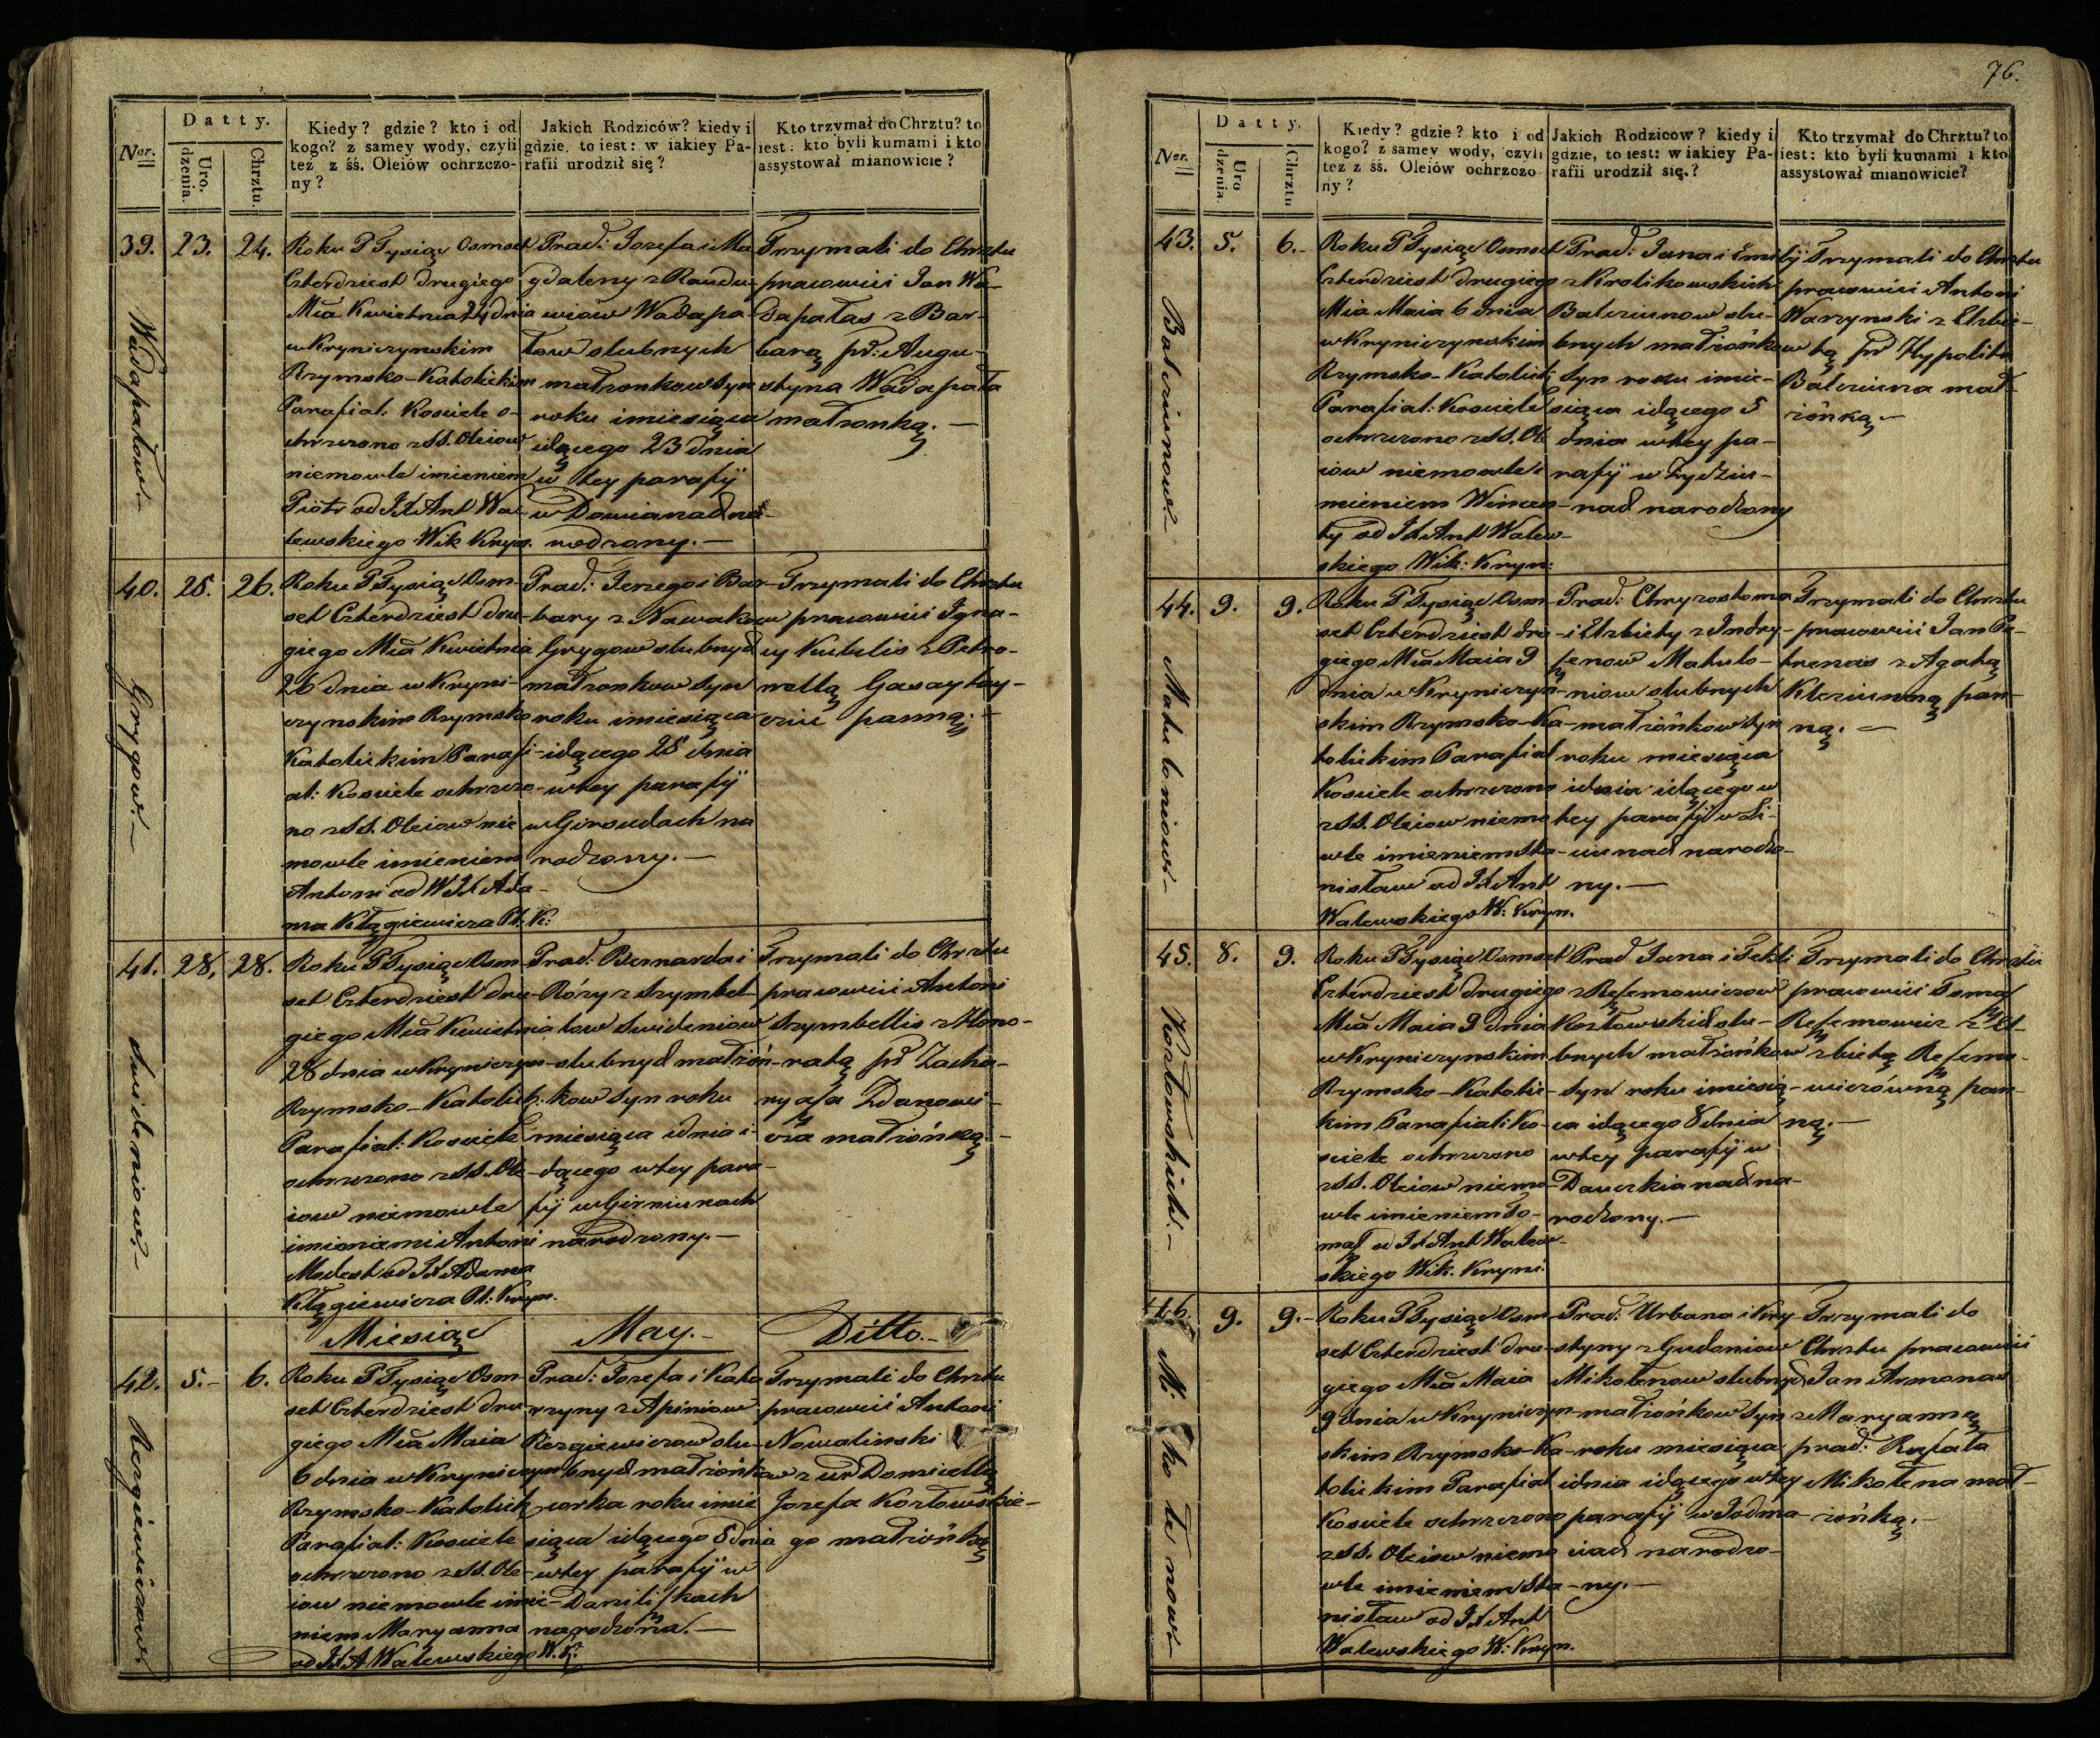 76.
Datty.
Ner.
Uro.
dzenia.
Chrztu.
Kiedy? gdzie? kto i od
kogo? z samey wody, czyli
też z śś. Oleiów ochrzczo-
ny?
Jakich Rodziców? kiedy i
gdzie, to iest: w iakiey Pa-
rafii urodził się?
Kto trzymał do Chrztu? to
iest: kto byli kumami i kto
assystował mianowicie?
39. 23. 24.
Wadapałow.
Roku P Tysiąc Osmset
Czterdziest drugiego
Mca Kwietnia 24 dnia
w Kryniczynskim
Rzymsko-Katolickim
Parafial. Kosciele o-
chrzczono z SS. Oleiow
niemowle imieniem
Piotr od JX Ant Wa-
lewskiego Wik Kryn.
Prad: Jozefa i Ma
gdaleny z Randu-
wiców Wadapa
łow slubnych
małzonkow syn
roku i miesiąca
idącego 23 dnia
w tey parafij
w
narodzony.
Trzymali do Chrztu
pracowici Jan Wa-
dapałas z Bar-
barą pd: Augu-
styna Wadapała
małzonką.
40. 25. 26.
Grygow.
Roku P Tysiąc Osm-
set Czterdziest dru-
giego Mca Kwietnia
26 dnia w Kryni-
czynskim Rzymsko
Katolickim Parafi-
al: Kosciele ochrzczo-
no z SS. Oleiow nie
mowle imieniem
Antoni od WJX Ada-
ma Kłągiewicza Pl: K:
Prad: Jerzego i Bar-
bary z Nowakow
Grygow slubnych
małzonkow syn
roku i miesiąca
idącego 25 dnia
w tey parafij
w Giroudach na
rodzony.
Trzymali do Chrztu
pracowici Igna-
cy Kutelis z Petro-
nellą Gasaytay-
cia panną.
41. 28. 28.
Swideniow.
Roku P Tysiąc Osm-
set Czterdziest dru-
giego Mca Kwietnia
28 dnia w Kryniczyn-
Rzymsko-Katolick:
Parafial: Kosciele
ochrzczono z SS. Ole-
iow niemowle
imieniem Antoni
Modest od JX Adama
Kłągiewicza Pl: Kryn.
Prad: Bernarda i
Róży z Szymbel-
low Swideniow
slubnych małzon-
kow syn roku
miesiąca i dnia i-
dącego w tey para-
fij w Girniunach
narodzony.
Trzymali do Chrztu
pracowici Antoni
Szymbellis z Hono-
ratą pd Zacha-
ryasza Zdanowi-
cza małzonką.
Miesiąc May. Ditto.
42. 5. 6.
Rezgiewiczow
Roku P Tysiąc Osm-
set Czterdziest dru-
giego Mca Maia
6 dnia w Kryniczyn
Rzymsko-Katolick
Parafial: Kosciele
ochrzczono z SS. Ole-
iow niemowle imie-
niem Maryanna
od JX A Walewskiego W. K:
Prad: Jozefa i Kata
rzyny z Apiniow
Rezgiewiczow slu-
bnych małzonkow
corka roku i mie
siąca idącego 5 dnia
w tey parafij w
Daniliszkach
narodzona.
Trzymali do Chrztu
pracowici Antoni
Nowalinski
z ur Domicellą
Jozefa Kozłowskie-
go małzonką
Datty.
Ner.
Uro
dzenia
Chrztu
Kiedy? gdzie? kto i od
kogo? z samey wody, czyli
też z śś. Oleiów ochrzczo-
ny?
Jakich Rodzicow? kiedy i
gdzie, to iest: w iakiey Pa-
rafii urodził się.?
Kto trzymał do Chrztu? to
iest: kto byli kumami i kto
assystował mianowicie?
43. 5. 6.
Balciunow.
Roku P Tysiąc Osmset
Czterdziest drugiego
Mca Maia 6 dnia
w Kryniczynskim
Rzymsko-Katolick
Parafial: Kosciele
ochrzczono z SS. Ole
iow niemowle i-
mieniem Wincen-
ty od JX Ant Walew-
skiego Wik: Kryn:
Prad: Jana i Emilij
z Krolikowskich
Balciunow slu-
bnych małzonkow
syn roku i mie-
siąca idącego 5
dnia w tey pa-
rafij w Zydziu-
nach narodzony
Trzymali do Chrztu
pracowici Antoni
Warzynski z Elzbie-
tą pd Hypolita
Balciuna mał-
zonką.
44. 9. 9.
Matuloniow.
Roku P Tysiąc Osm-
set Czterdziest dru-
giego Mca Maia 9
dnia w Kryniczyn-
skim Rzymsko-Ka-
tolickim Parafial
Kosciele ochrzczono
z SS. Oleiow niemo
wle imieniem Sta-
nisław od JX Ant
Walewskiego W: Kryn.
Prad: Chryzostoma
i Elzbiety z Indry-
szenow Matulo-
niow slubnych
małzonkow syn
roku miesiąca
i dnia idącego w
tey parafij w Li-
unach narodzo-
ny.
Trzymali do Chrztu
pracowici Jan Pe-
trenas z Agatą
Kleziunną pan-
ną.
45. 8. 9.
Kozłowskich.
Roku P Tysiąc Osmset
Czterdziest drugiego
Mca Maia 9 dnia
w Kryniczynskim
Rzymsko-Katolic-
kim Parafial: Ko-
sciele ochrzczono
z SS. Oleiow niemo-
wle imieniem To-
masz od JX Ant Walew-
skiego Wik. Kryni.
Prad Jana i Tekli
z Reszemowiczow
Kozłowskich slu-
bnych małzonkow
syn roku i miesią-
ca idącego 8 dnia
w tey parafij w
Dauczkianach na-
rodzony.
Trzymali do Chrztu
pracowici Tomasz
Reszemowicz z El-
zbietą Reszemo-
wiczówną pan-
ną.
46. 9. 9.
Mikołenow
Roku P Tysiąc Osm-
set Czterdziest dru-
giego Mca Maia
9 dnia w Kryniczyn-
skim Rzymsko-Ka-
tolickim Parafial
Kosciele ochrzczono
z SS. Oleiow niemo
wle imieniem Sta-
nisław od JX Ant
Walewskiego W: Kryn.
Prad: Urbana i Kry-
styny z Gudoniow
Mikołenow slubnych
małzonkow syn
roku miesiąca
i dnia idącego w tey
parafij w Jodma-
ciach narodzo-
ny.
Trzymali do
Chrztu pracowici
Jan Armonas
z Maryanną
prad: Rafała
Mikołena mał-
zonką.